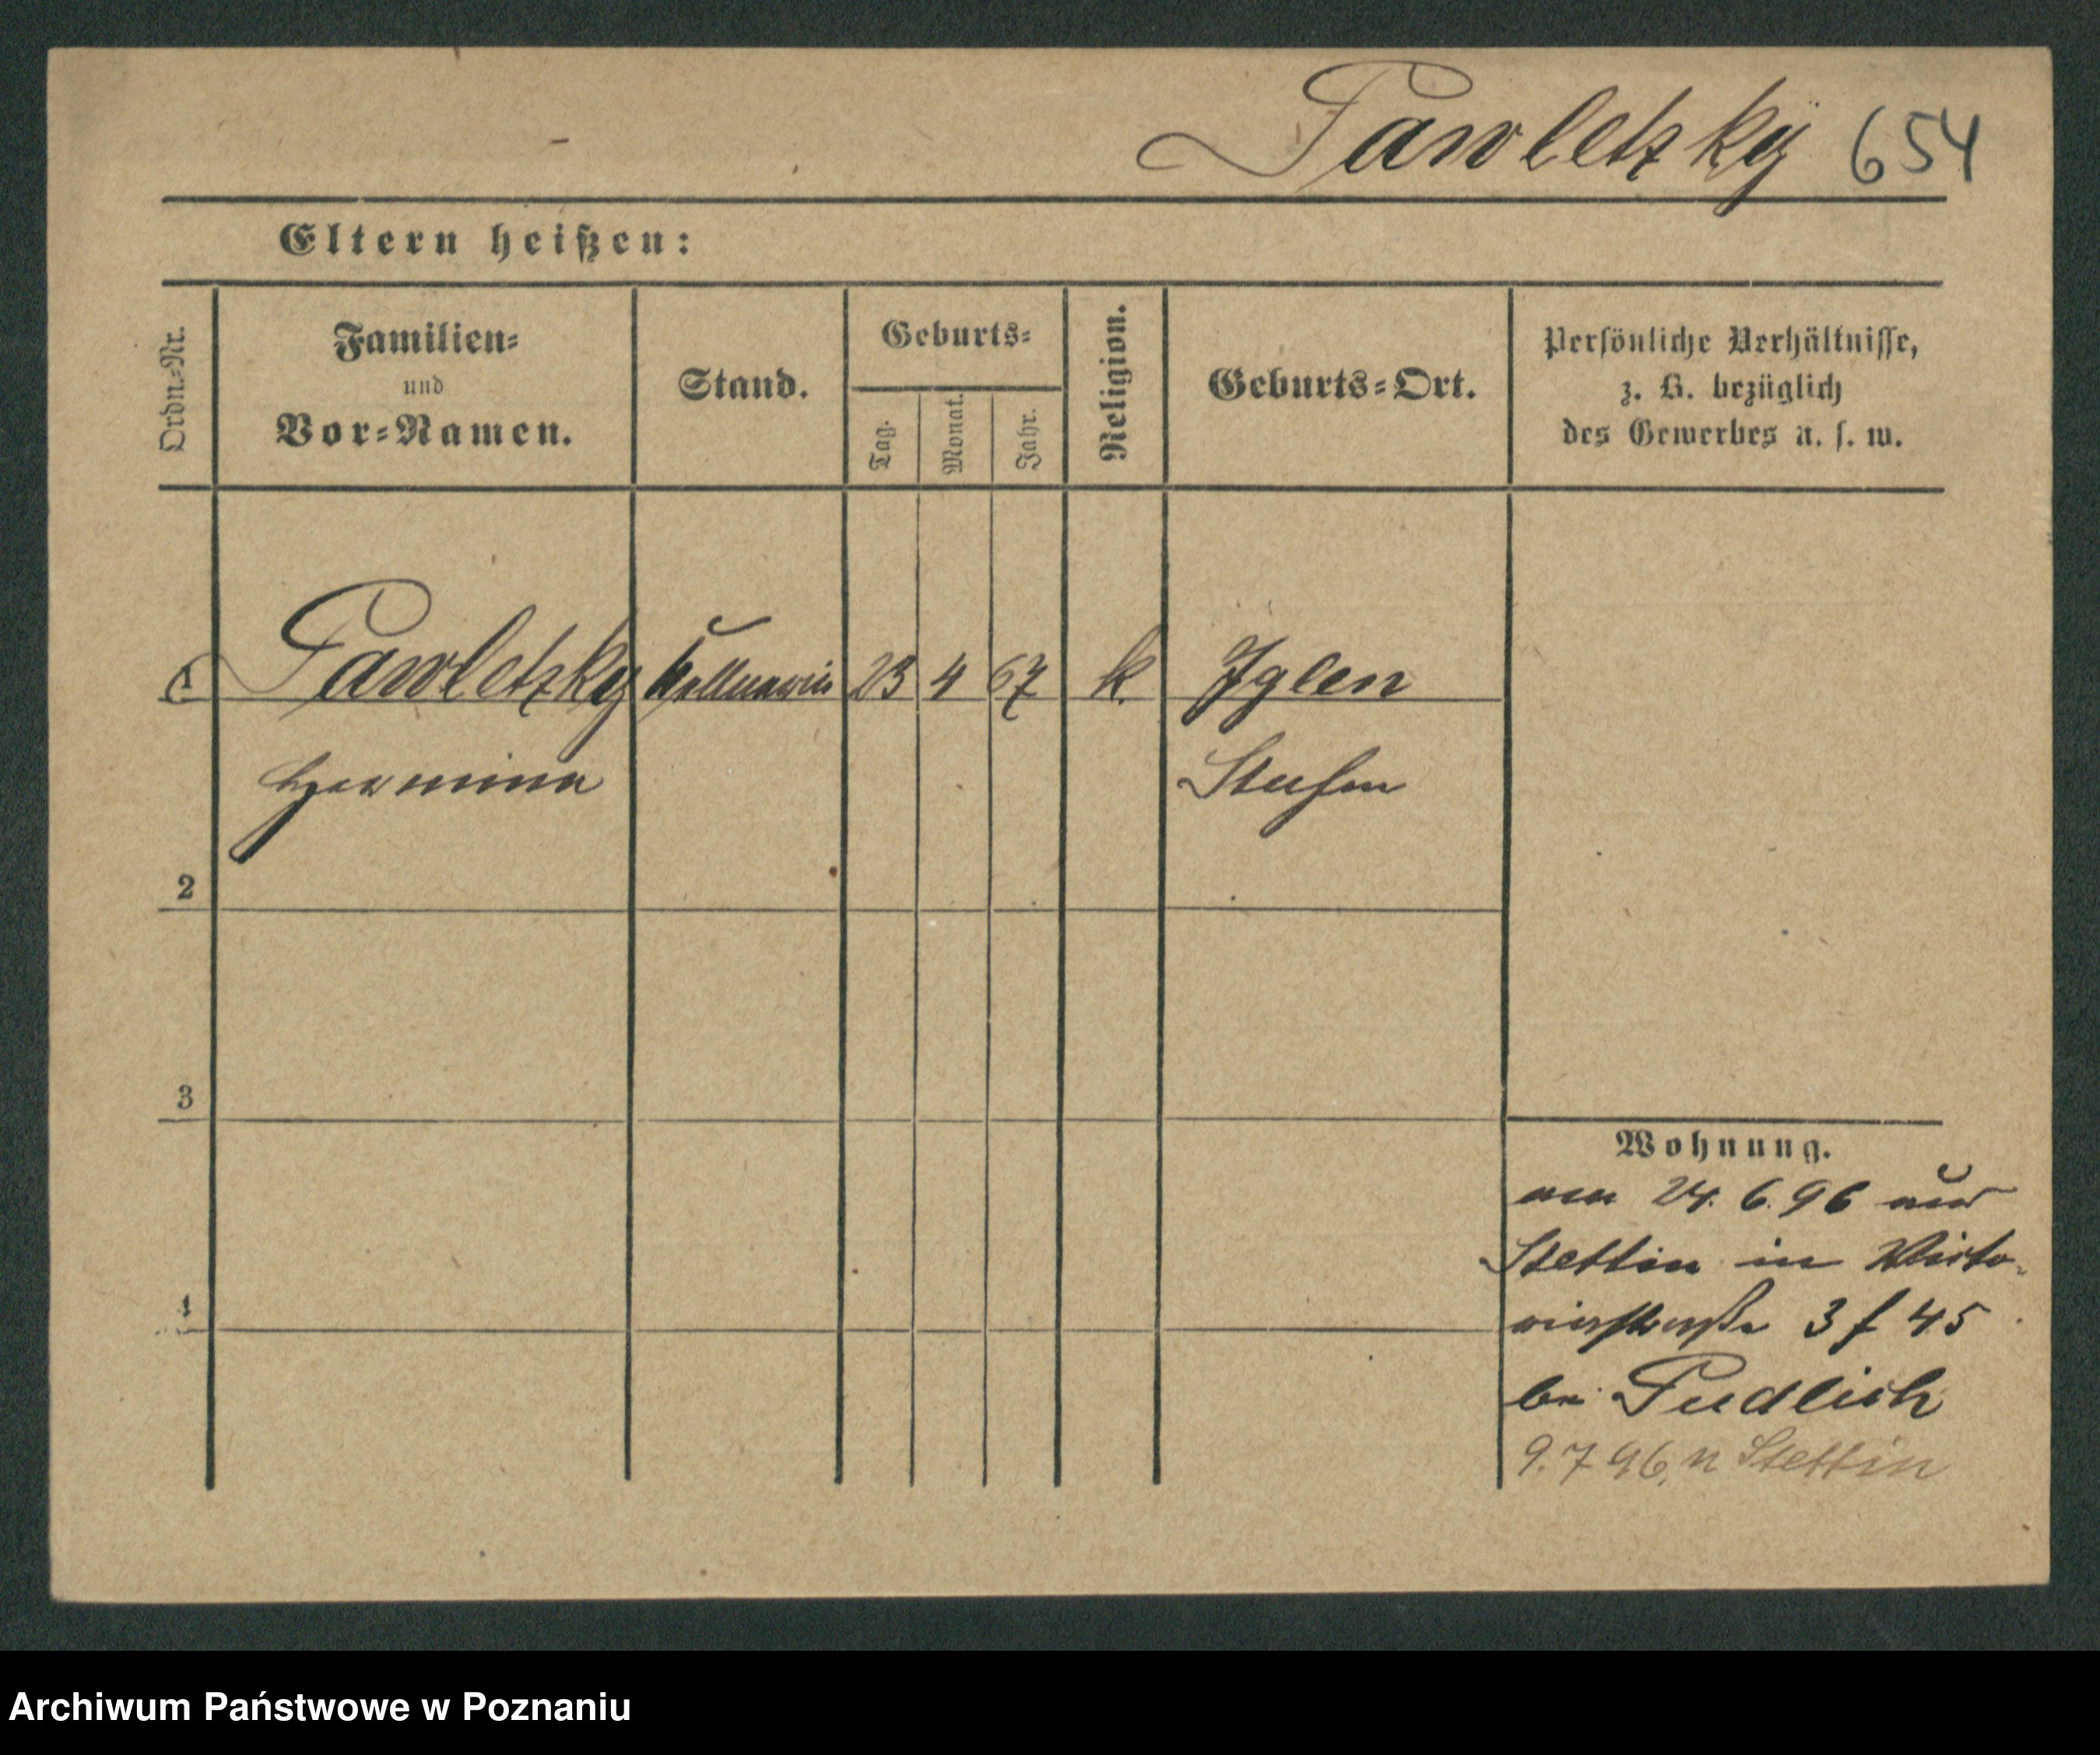 Pawletzky 654
Eltern heißen:
Ordn.-Nr.
Familien-
und
Vor-Namen.
Stand.
Geburts-
Tag.
Monat.
Jahr.
Religion.
Geburts-Ort.
Persönliche Verhältnisse,
z. B. bezüglich
des Gewerbes u. s. w.
1 Pawletzky 23 4 67 k. Iglen
Hermina
2
3
4
Wohnung.
am 24. 6. 96 aus
Stettin in Victo-
riastraße 3 f 45
bei Pudlich
9. 7 96, n Stettin
Archiwum Państwowe w Poznaniu